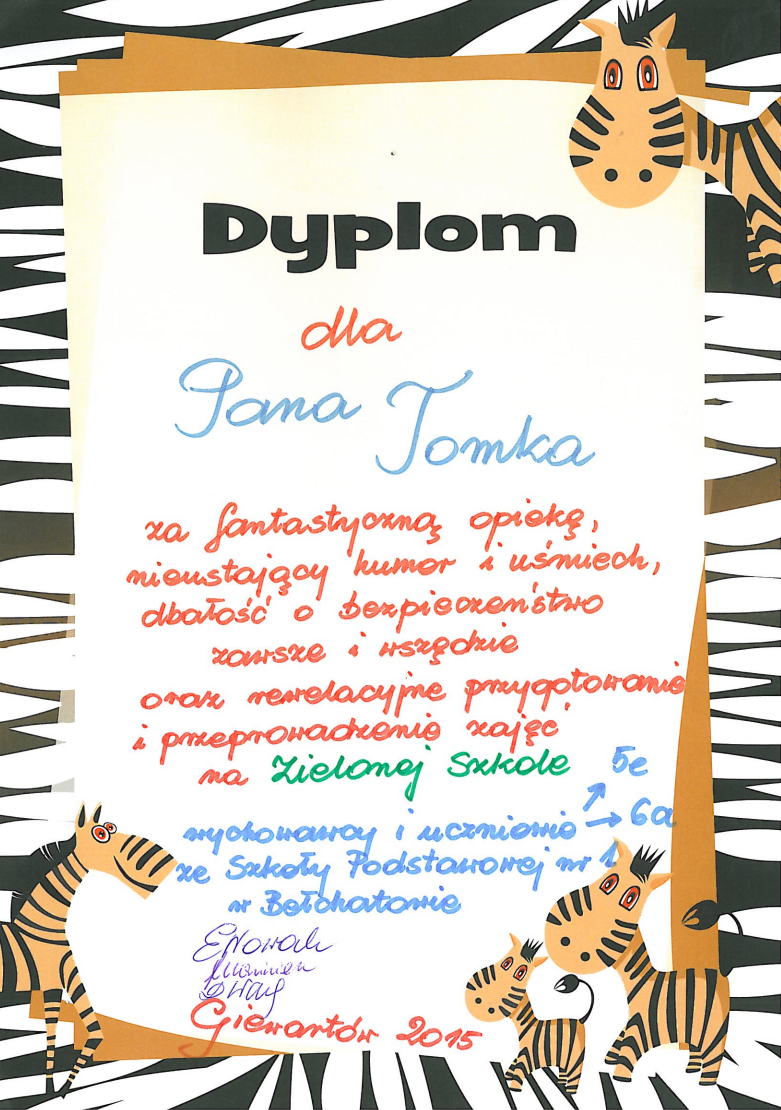 Dyplom
dla
Pana
Tomka
za fantastyczną opiekę,
nieustający humor i uśmiech,
dbałość o bezpieczeństwo
zawsze i wszędzie
oraz rewelacyjne przygotowanie
i przeprowadzenie zajęć
na Zielonej Szkole
5e
wychowawcy i uczniowie → 6a
ze Szkoły Podstawowej nr 1
w Bełchatowie
ENowak
Giewartów 2015